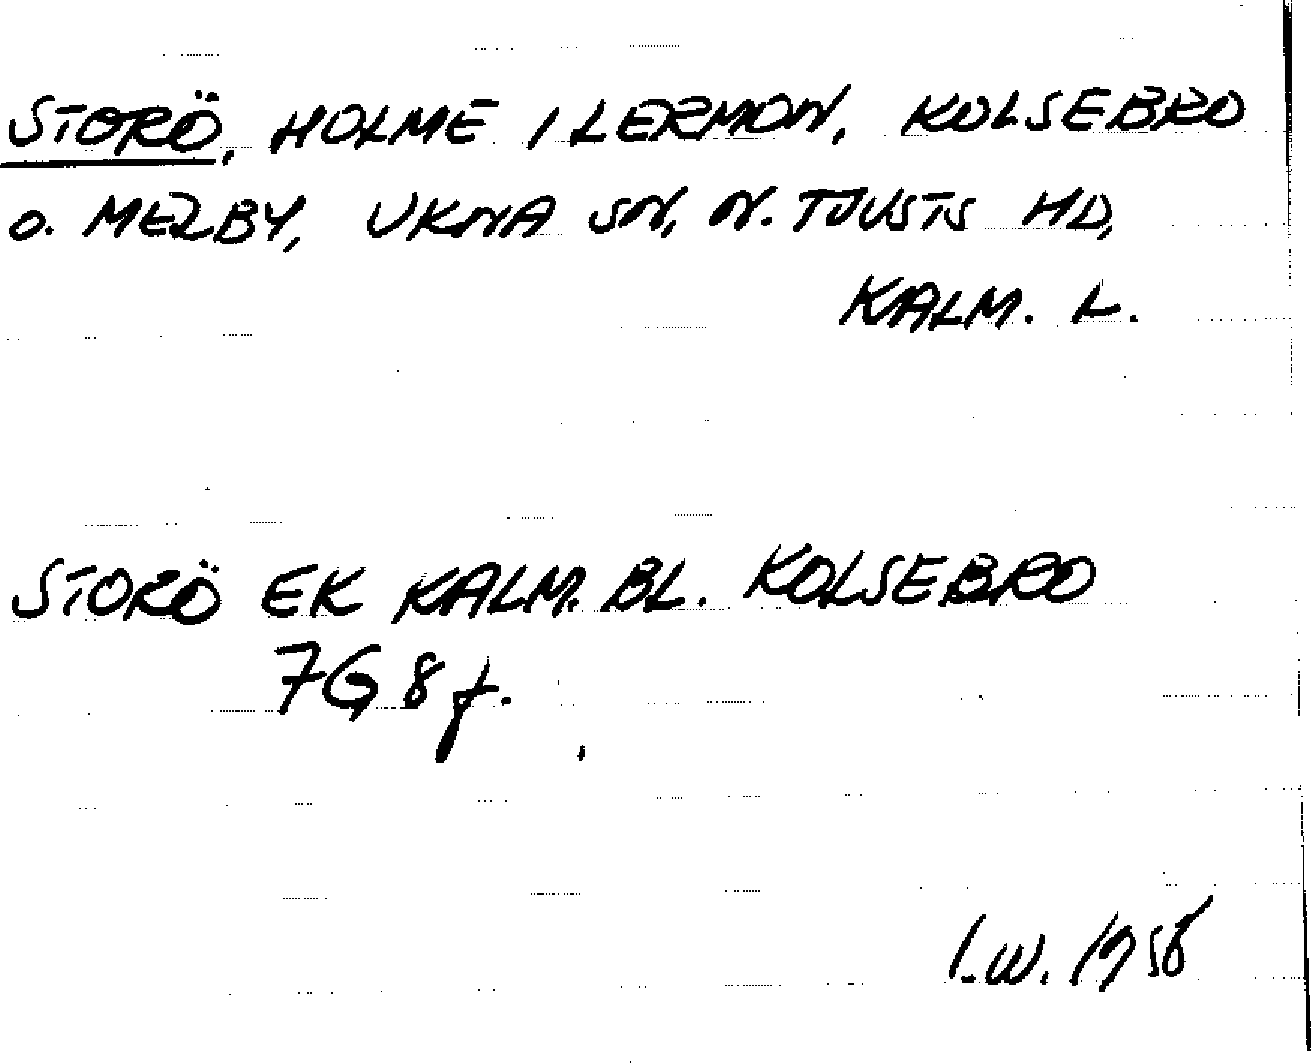 STORÖ, HOLME I LERMON, KOLSEBRO
o. MELBY, UKNA SN, N. TJUSTS HD,
KALM. L.
STORÖ EK KALM. BL. KOLSEBRO
7G 8f.
I.W. 1956